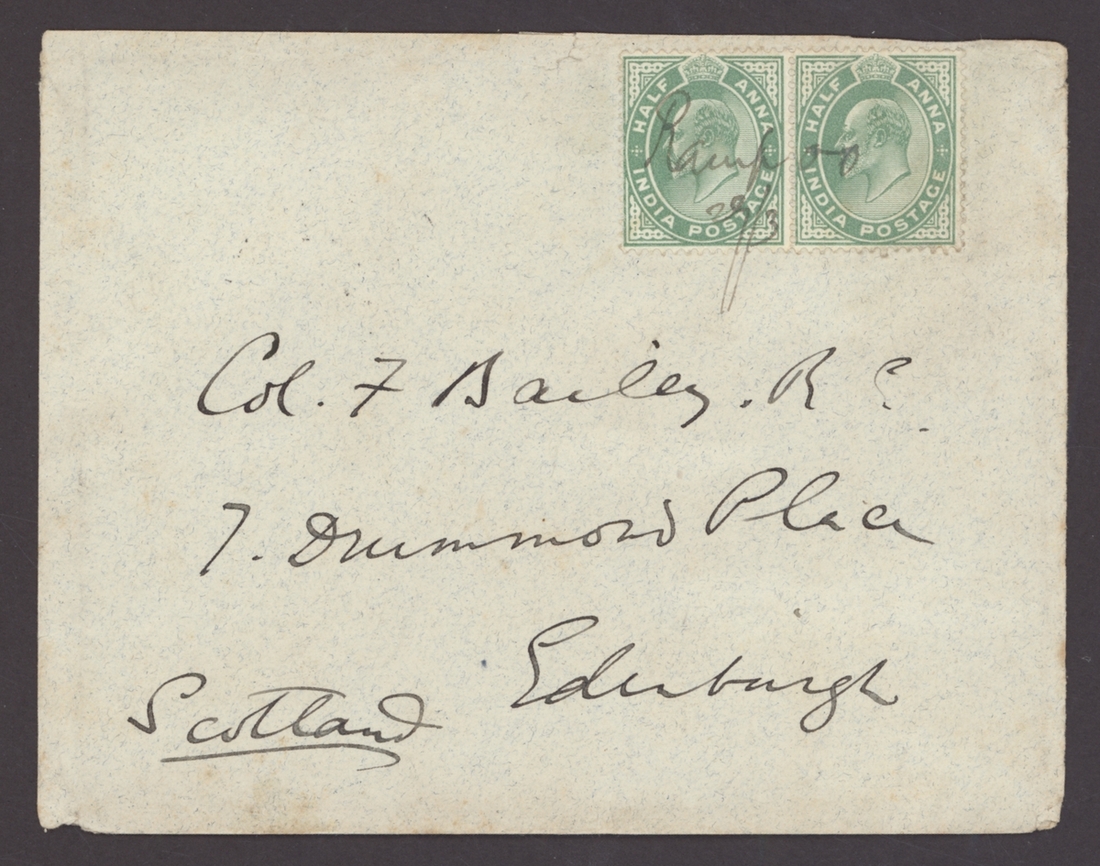 HALF ANNA INDIA POSTAGE
HALF ANNA INDIA POSTAGE
Rampoo
28/3
Col. F Bailey. R E.
7. Drummond Place
Edinburgh
Scotland